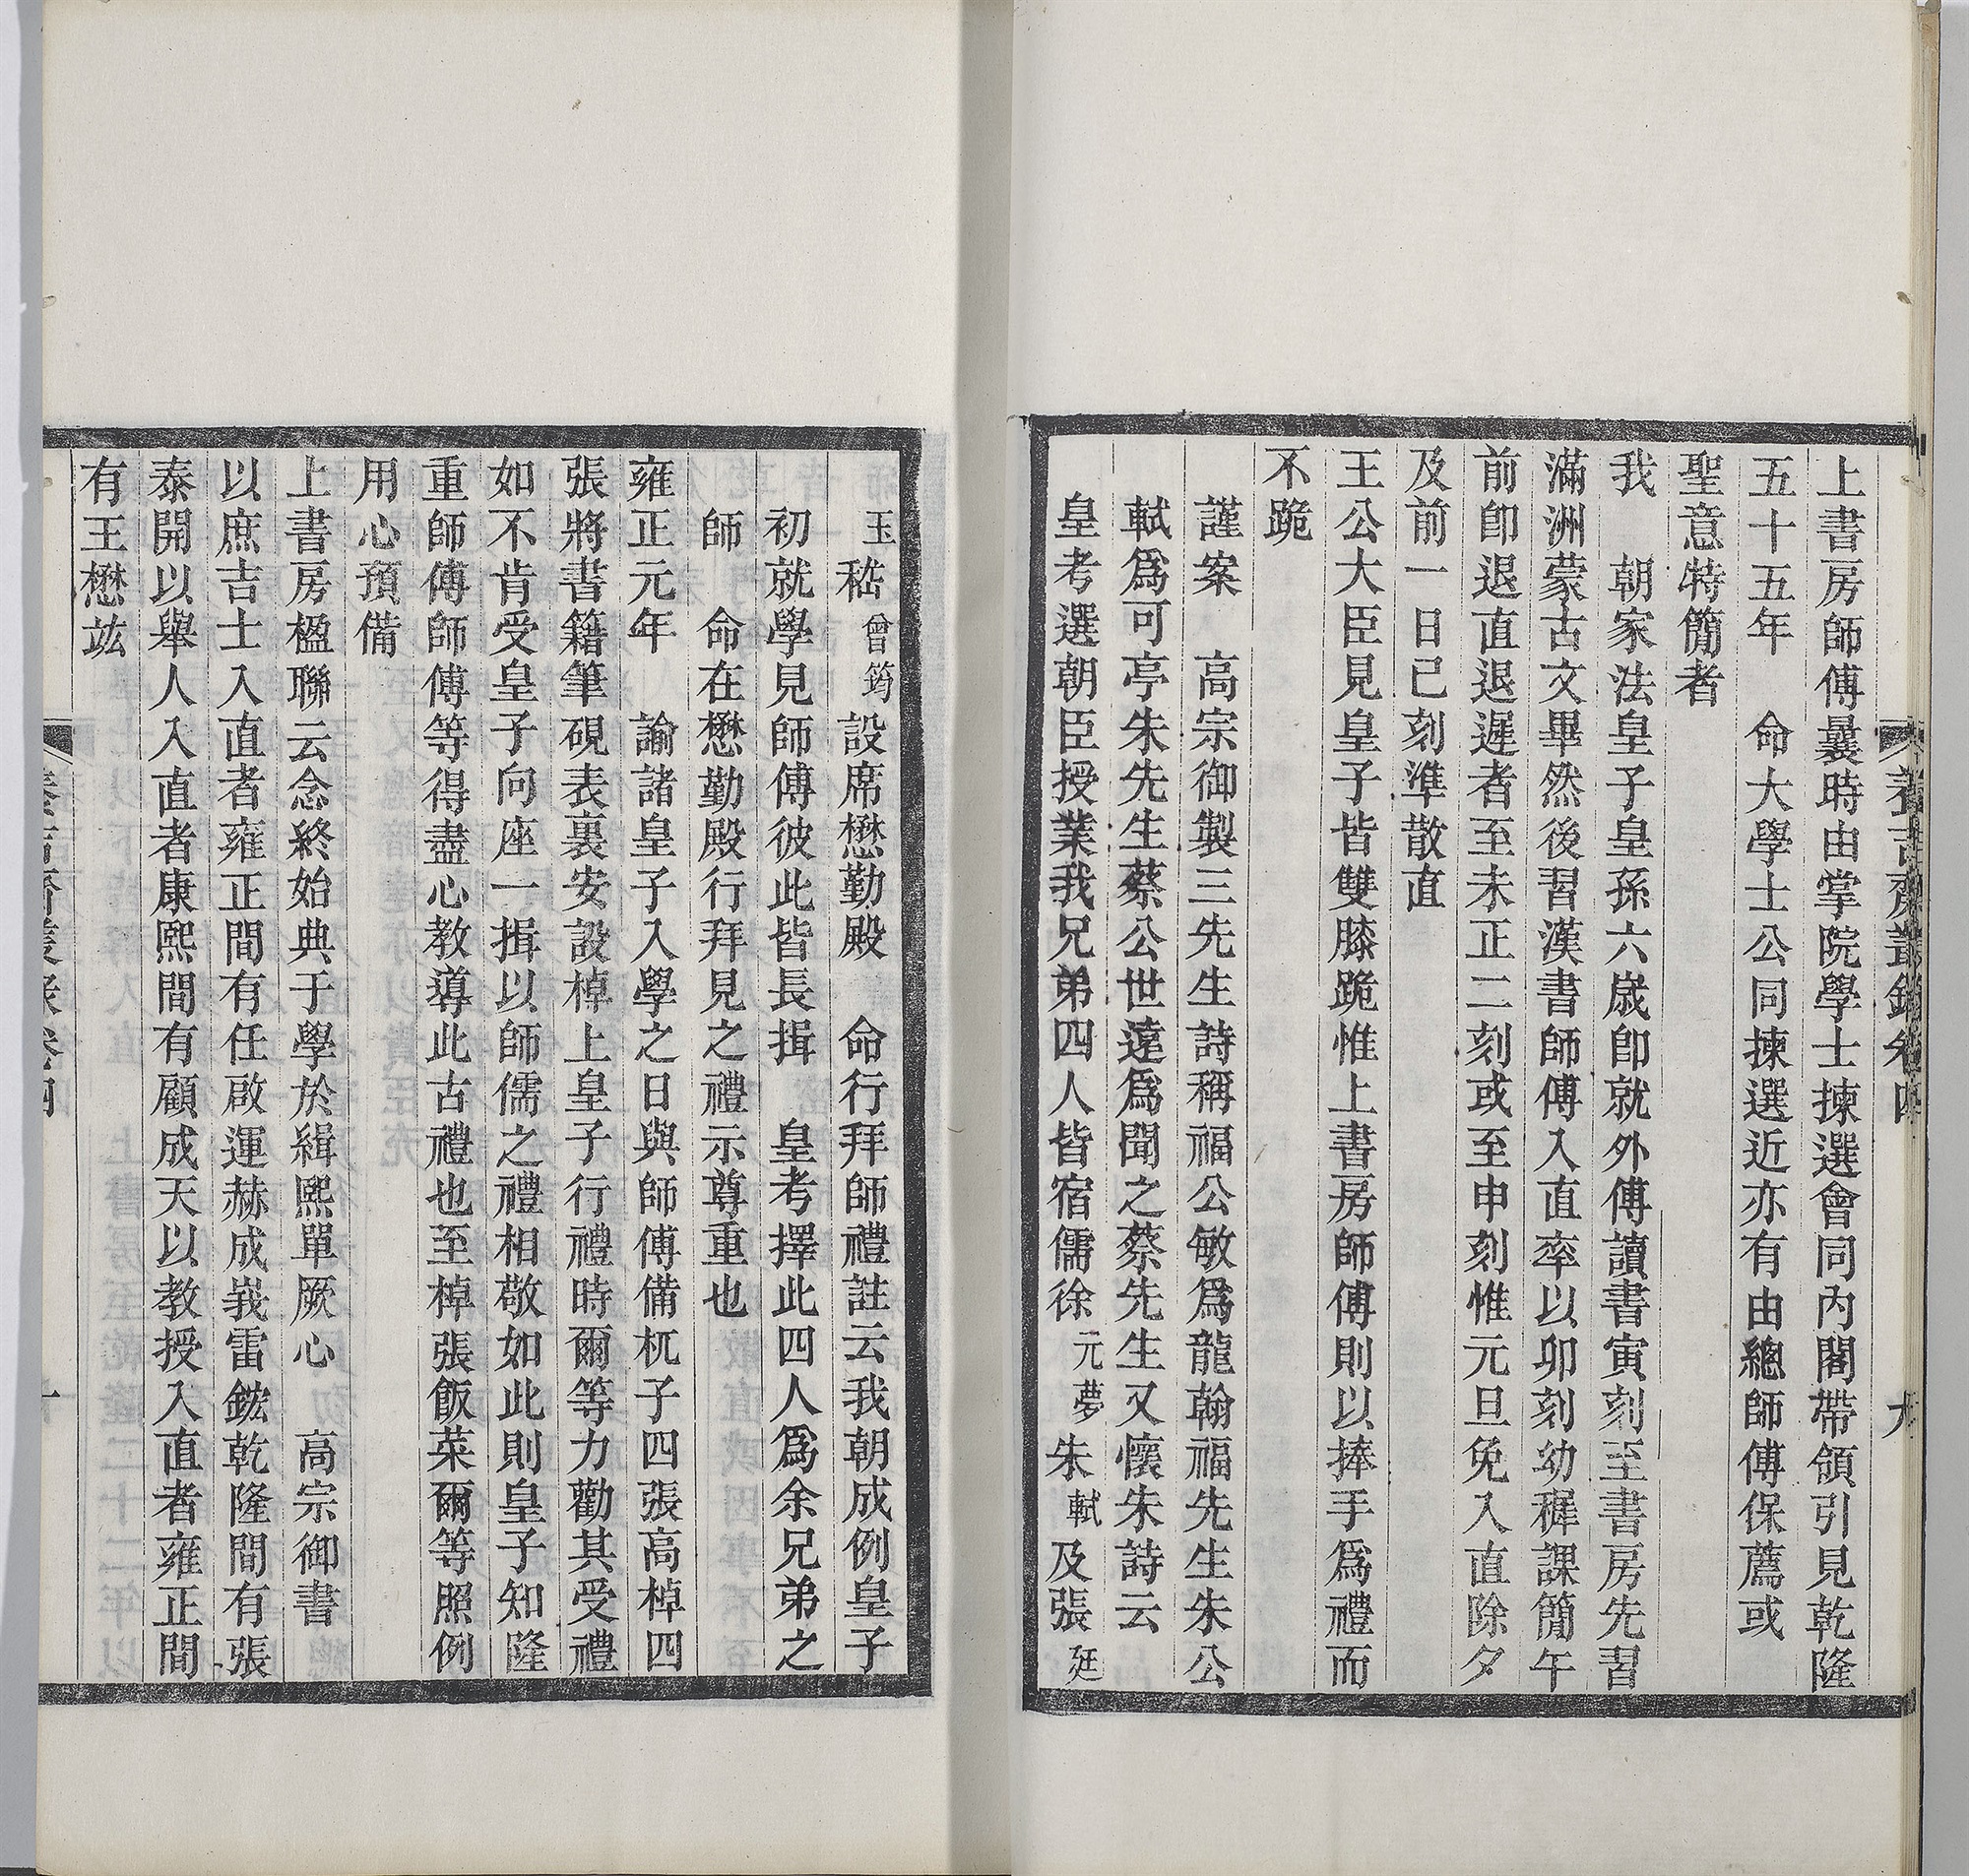 上書房師傅曩時由掌院學士揀選會同內閣帶領引見乾隆
五十五年　命大學士公同揀選近亦有由總師傅保薦或
聖意特簡者
我　朝家法皇子皇孫六歲即就外傅讀書寅刻至書房先習
滿洲蒙古文畢然後習漢書師傅入直率以卯刻幼穉課簡午
前即退直退遲者至未正二刻或至申刻惟元旦免入直除夕
及前一日巳刻準散直
王公大臣見皇子皆雙膝跪惟上書房師傅則以捧手爲禮而
不跪
謹案　高宗御製三先生詩稱福公敏爲龍翰福先生朱公
軾爲可亭朱先生蔡公世遠爲聞之蔡先生又懷朱詩云
皇考選朝臣授業我兄弟四人皆宿儒徐元夢朱軾及張廷
玉嵇曾筠設席懋勤殿　命行拜師禮註云我朝成例皇子
初就學見師傅彼此皆長揖　皇考擇此四人爲余兄弟之
師　命在懋勤殿行拜見之禮示尊重也
雍正元年　諭諸皇子入學之日與師傅備杌子四張高棹四
張將書籍筆硯表裏安設棹上皇子行禮時爾等力勸其受禮
如不肯受皇子向座一揖以師儒之禮相敬如此則皇子知隆
重師傅師傅等得盡心教導此古禮也至棹張飯菜爾等照例
用心預備
上書房楹聯云念終始典于學於緝熙單厥心　高宗御書
以庶吉士入直者雍正間有任啟運赫成峩雷鋐乾隆間有張
泰開以舉人入直者康熙間有顧成天以教授入直者雍正間
有王懋竑